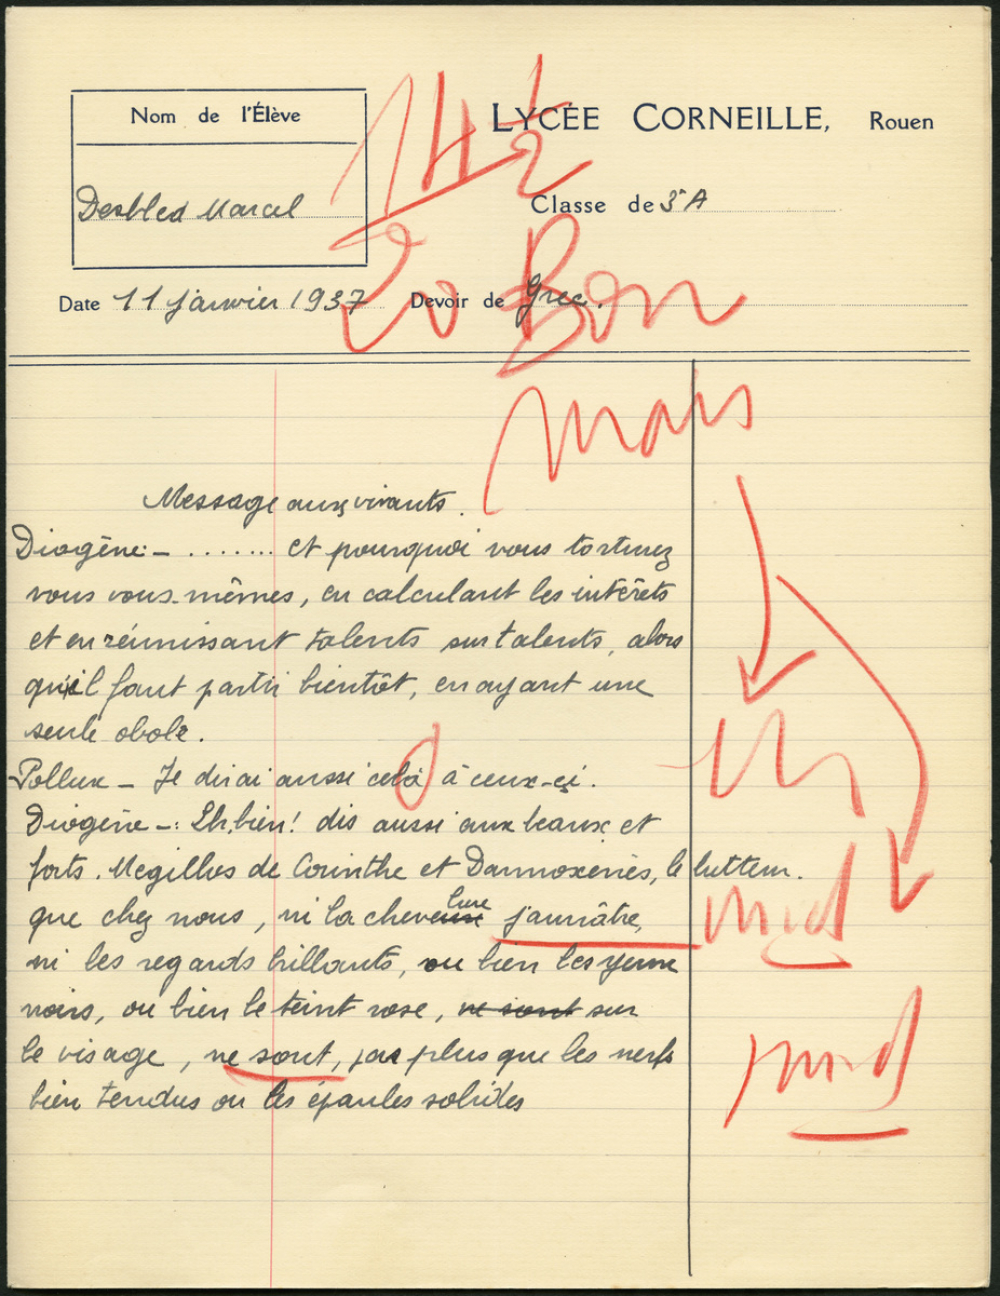 Nom de l'Élève
LYCÉE CORNEILLE, Rouen
14 1/2
20
Marcel
Classe de 3e A
Date 11 janvier 1937 Devoir de Grec.
Bon
mais
Message aux vivants.
Diogène:- ....... et pourquoi vous torturez
vous vous-mêmes, en calculant les intérêts
et en réunissant talents sur talents, alors
qu'il faut partir bientôt, en ayant une
seule obole.
Pollux - Je dirai aussi celà à ceux-ci.
Diogène -: Eh, bien! dis aussi aux beaux et
forts. Megillos de Corinthe et Damoxenès, le lutteur.
que chez nous, ni la chevelure jaunâtre,
ni les regards brillants, ou bien les yeux
noirs, ou bien le teint rose, ne sont sur
le visage, ne sont, pas plus que les nerfs
bien tendus ou les épaules solides
md
md